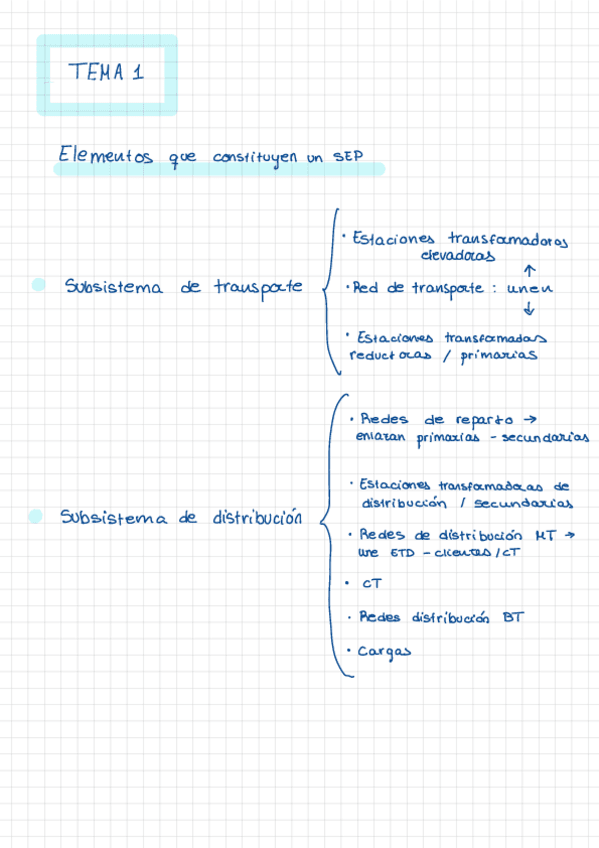 TEMA 1
Elementos que constituyen un SEP
Subsistema de transporte
· Estaciones transformadoras
elevadoras
↑
· Red de transporte : unen
↓
· Estaciones transformadas
reductoras / primarias
Subsistema de distribución
· Redes de reparto →
enlazan primarias - secundarias
· Estaciones transformadoras de
distribución / secundarias
· Redes de distribución MT →
une ETD - clientes / CT
· CT
· Redes distribución BT
· Cargas